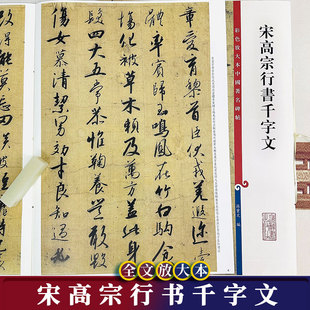 彩色放大本中國著名碑帖
宋高宗行書千字文
孫寶文 編
章愛育黎首臣伏戎羌遐邇
體率賓歸王鳴鳳在竹白駒食
場化被草木賴及萬方蓋此身
髮四大五常恭惟鞠養豈敢毀
傷女慕清潔男効才良知過必
改得能莫忘罔
全文放大本
宋高宗行书千字文